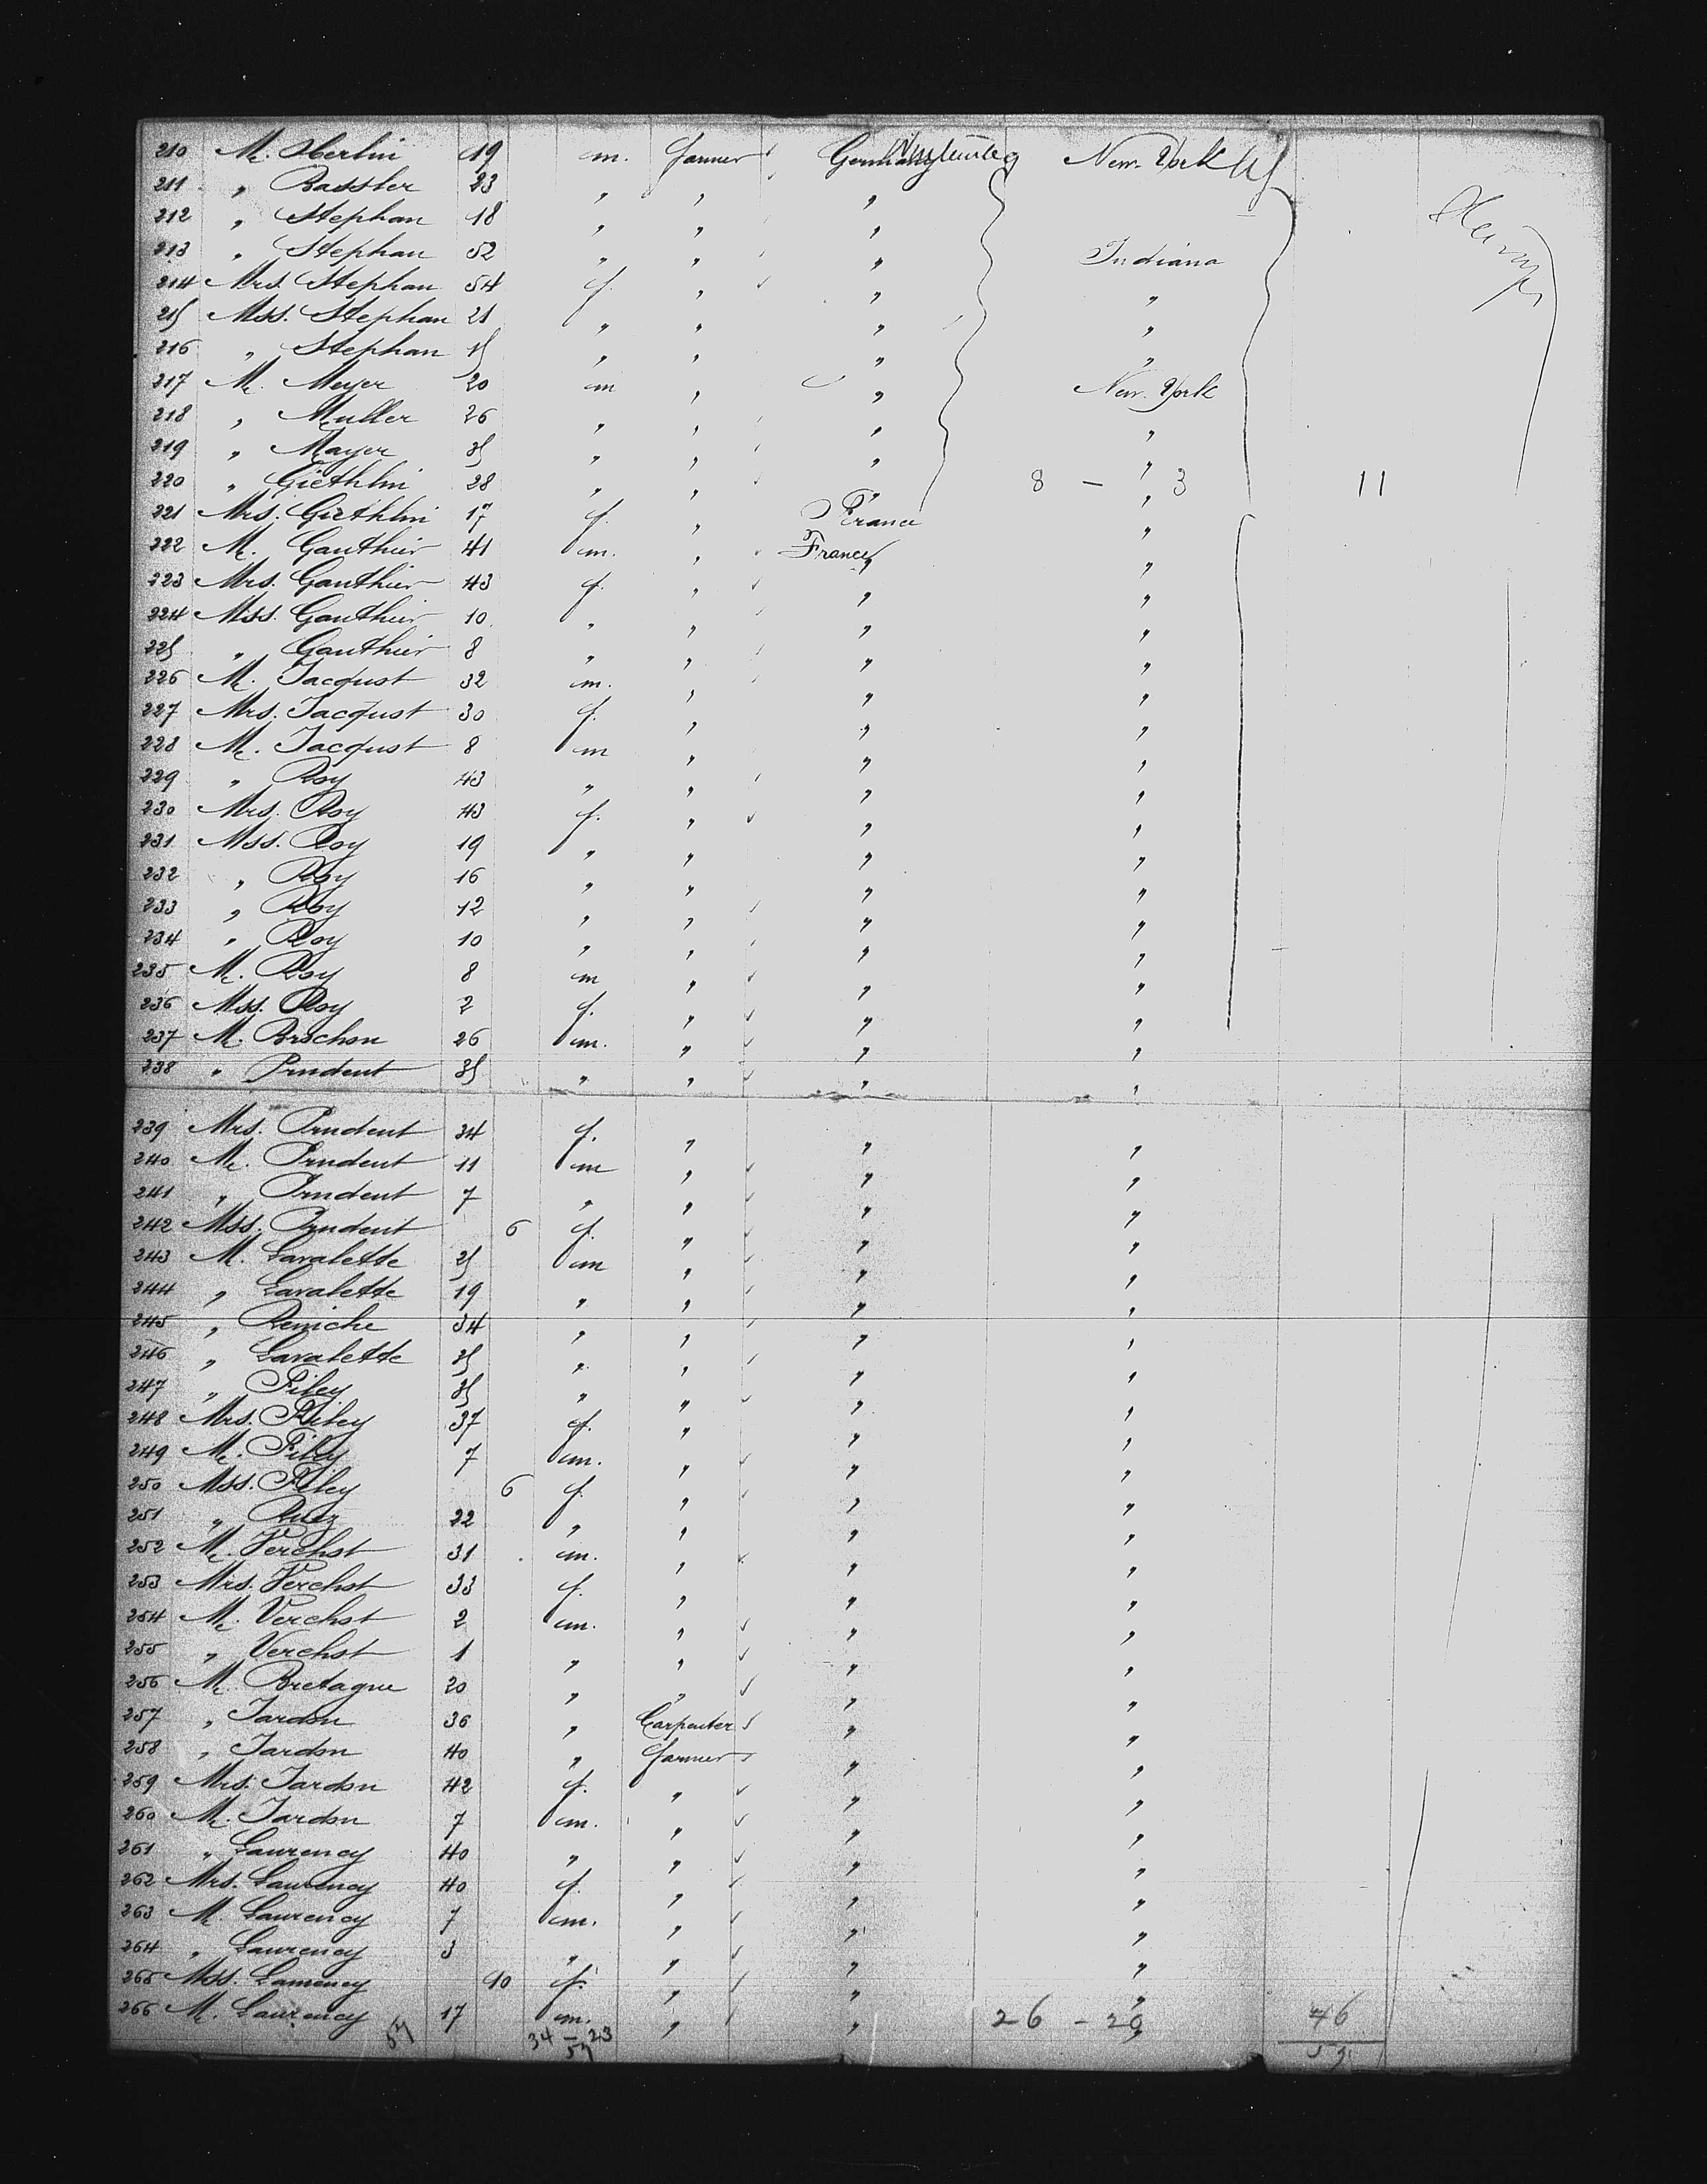 210 Mr. Herlin 19 m. farmer Germany New-York
211 " Bassler 23 " " "
212 " Stephan 18 " " "
213 " Stephan 52 " " " Indiana
214 Mrs. Stephan 54 f. " " "
215 Mss. Stephan 21 " " " "
216 " Stephan 15 " " " "
217 M. Meyer 20 m " " New-York
218 " Muller 26 " " " "
219 " Mayer 35 " " " "
220 " Giethlin 28 " " " " 8 - 3 11
221 Mrs. Giethlin 17 f. " France "
222 M. Gauthier 41 m. " France "
223 Mrs. Gauthier 43 f. " " "
224 Mss. Gauthier 10 " " " "
225 " Gauthier 8 " " " "
226 M. Jacqust 32 m. " " "
227 Mrs. Jacqust 30 f. " " "
228 M. Jacqust 8 m " " "
229 " Roy 43 " " " "
230 Mrs. Roy 43 f. " " "
231 Mss. Roy 19 " " " "
232 " Roy 16 " " " "
233 " Roy 12 " " " "
234 " Roy 10 " " " "
235 M. Roy 8 m " " "
236 Mss. Roy 2 f. " " "
237 M. Brochon 26 m. " " "
238 " Prudent 35 " " " "
239 Mrs. Prudent 34 f. " " "
240 M. Prudent 11 m " " "
241 " Prudent 7 " " " "
242 Mss. Prudent 6 f. " " "
243 M. Lavalette 25 m " " "
244 " Lavalette 19 " " " "
245 " Reniche 34 " " " "
246 " Lavalette 35 " " " "
247 " Filey 35 " " " "
248 Mrs. Filey 37 f. " " "
249 M. Filey 7 m. " " "
250 Mss. Filey 6 f. " " "
251 " Rutz 22 " " " "
252 M. Verchst 31 m. " " "
253 Mrs. Verchst 33 f. " " "
254 M. Verchst 2 m. " " "
255 " Verchst 1 " " " "
256 M. Bretagne 20 " " " "
257 " Jardon 36 " Carpenter " "
258 " Jardon 40 " farmer " "
259 Mrs. Jardon 42 f. " " "
260 M. Jardon 7 m. " " "
261 " Laurency 40 " " " "
262 Mrs. Laurency 40 f. " " "
263 M. Laurency 7 m. " " "
264 " Laurency 3 " " " "
265 Mss. Laurency 10 f. " " "
266 M. Laurency 17 m. " " " 26 - 20 46
57 34 - 23
57